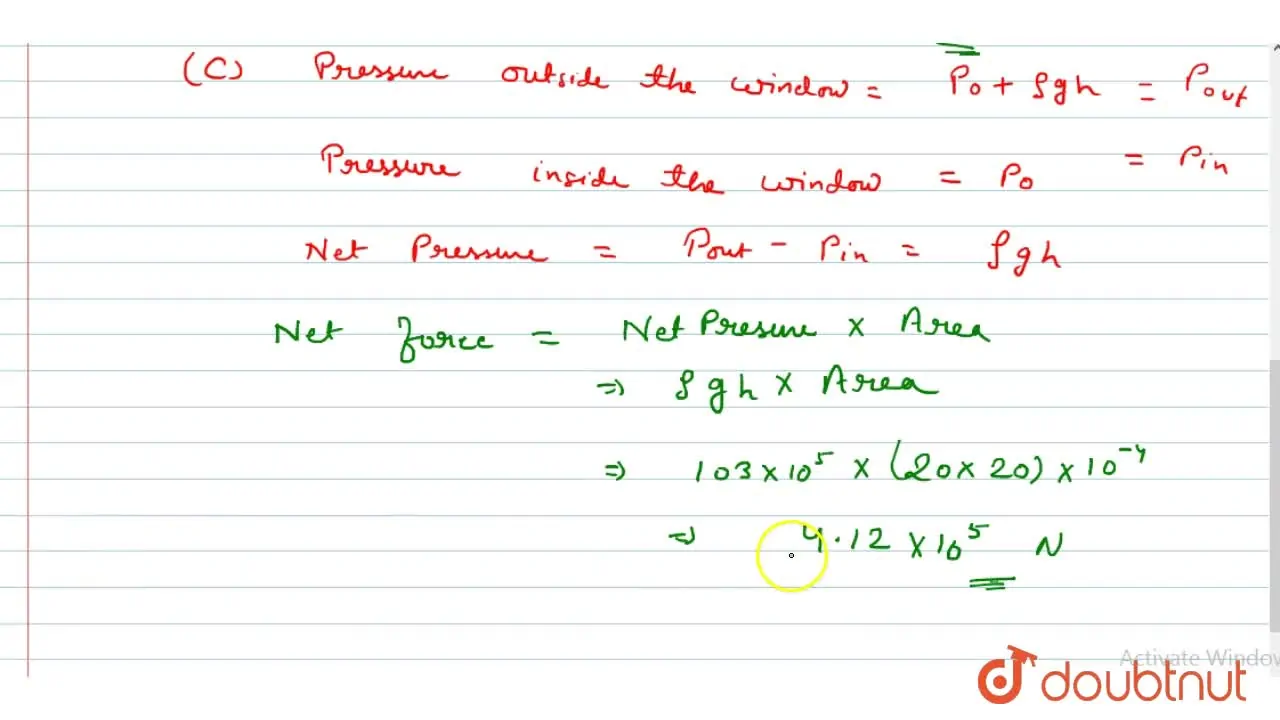 (C) Pressure outside the window = P₀ + ρgh = Pout
Pressure inside the window = P₀ = Pin
Net Pressure = Pout - Pin = ρgh
Net force = Net Presure × Area
⇒ ρgh × Area
⇒ 103 × 10⁵ × (20 × 20) × 10⁻⁴
⇒ 4.12 × 10⁵ N
Activate Window
doubtnut